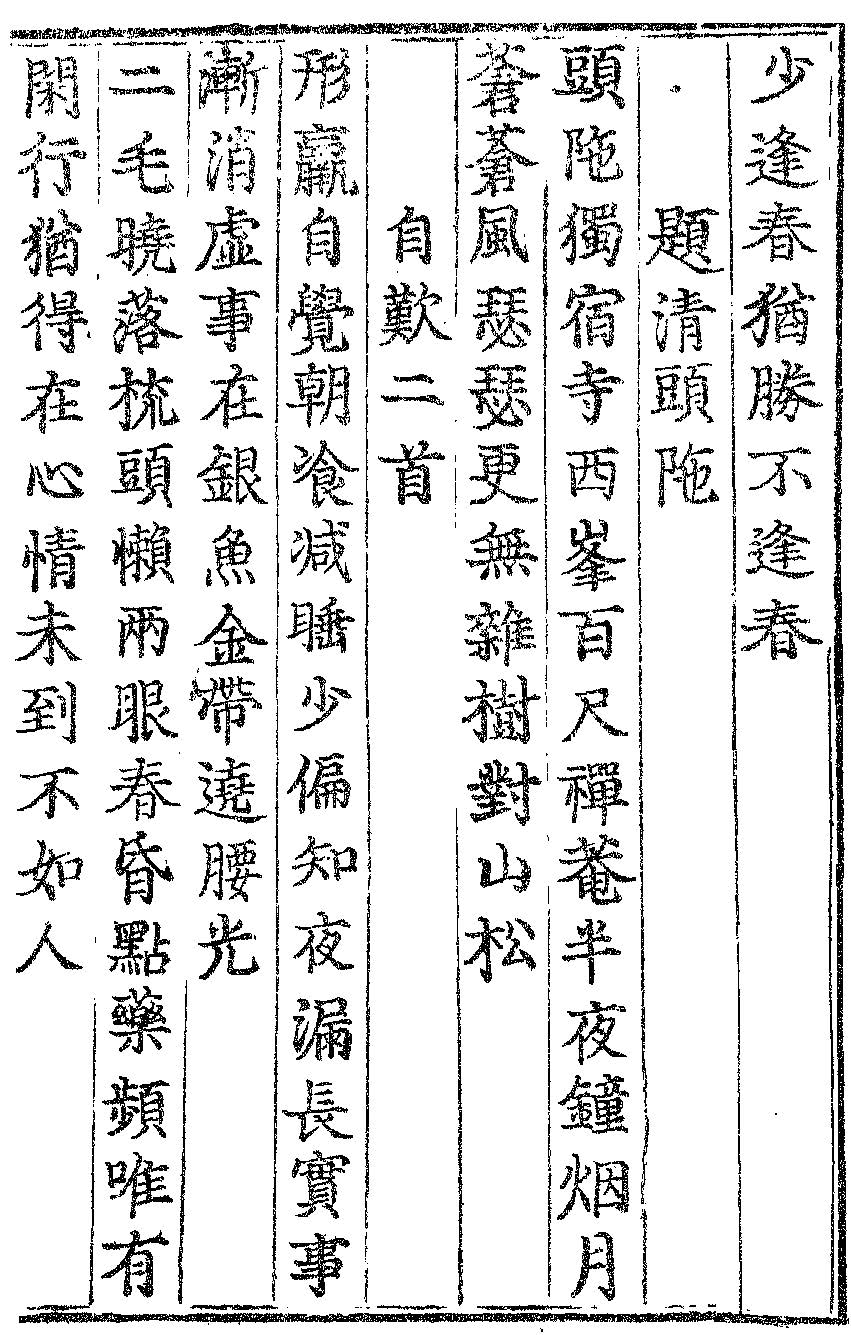 少逢春猶勝不逢春
題清頭陁
頭陁獨宿寺西峯百尺禪菴半夜鐘烟月
蒼蒼風瑟瑟更無雜樹對山松
自歎二首
形羸自覺朝飡減睡少偏知夜漏長實事
漸消虛事在銀魚金帶遶腰光
二毛曉落梳頭懶兩眼春昏點藥頻唯有
閑行猶得在心情未到不如人